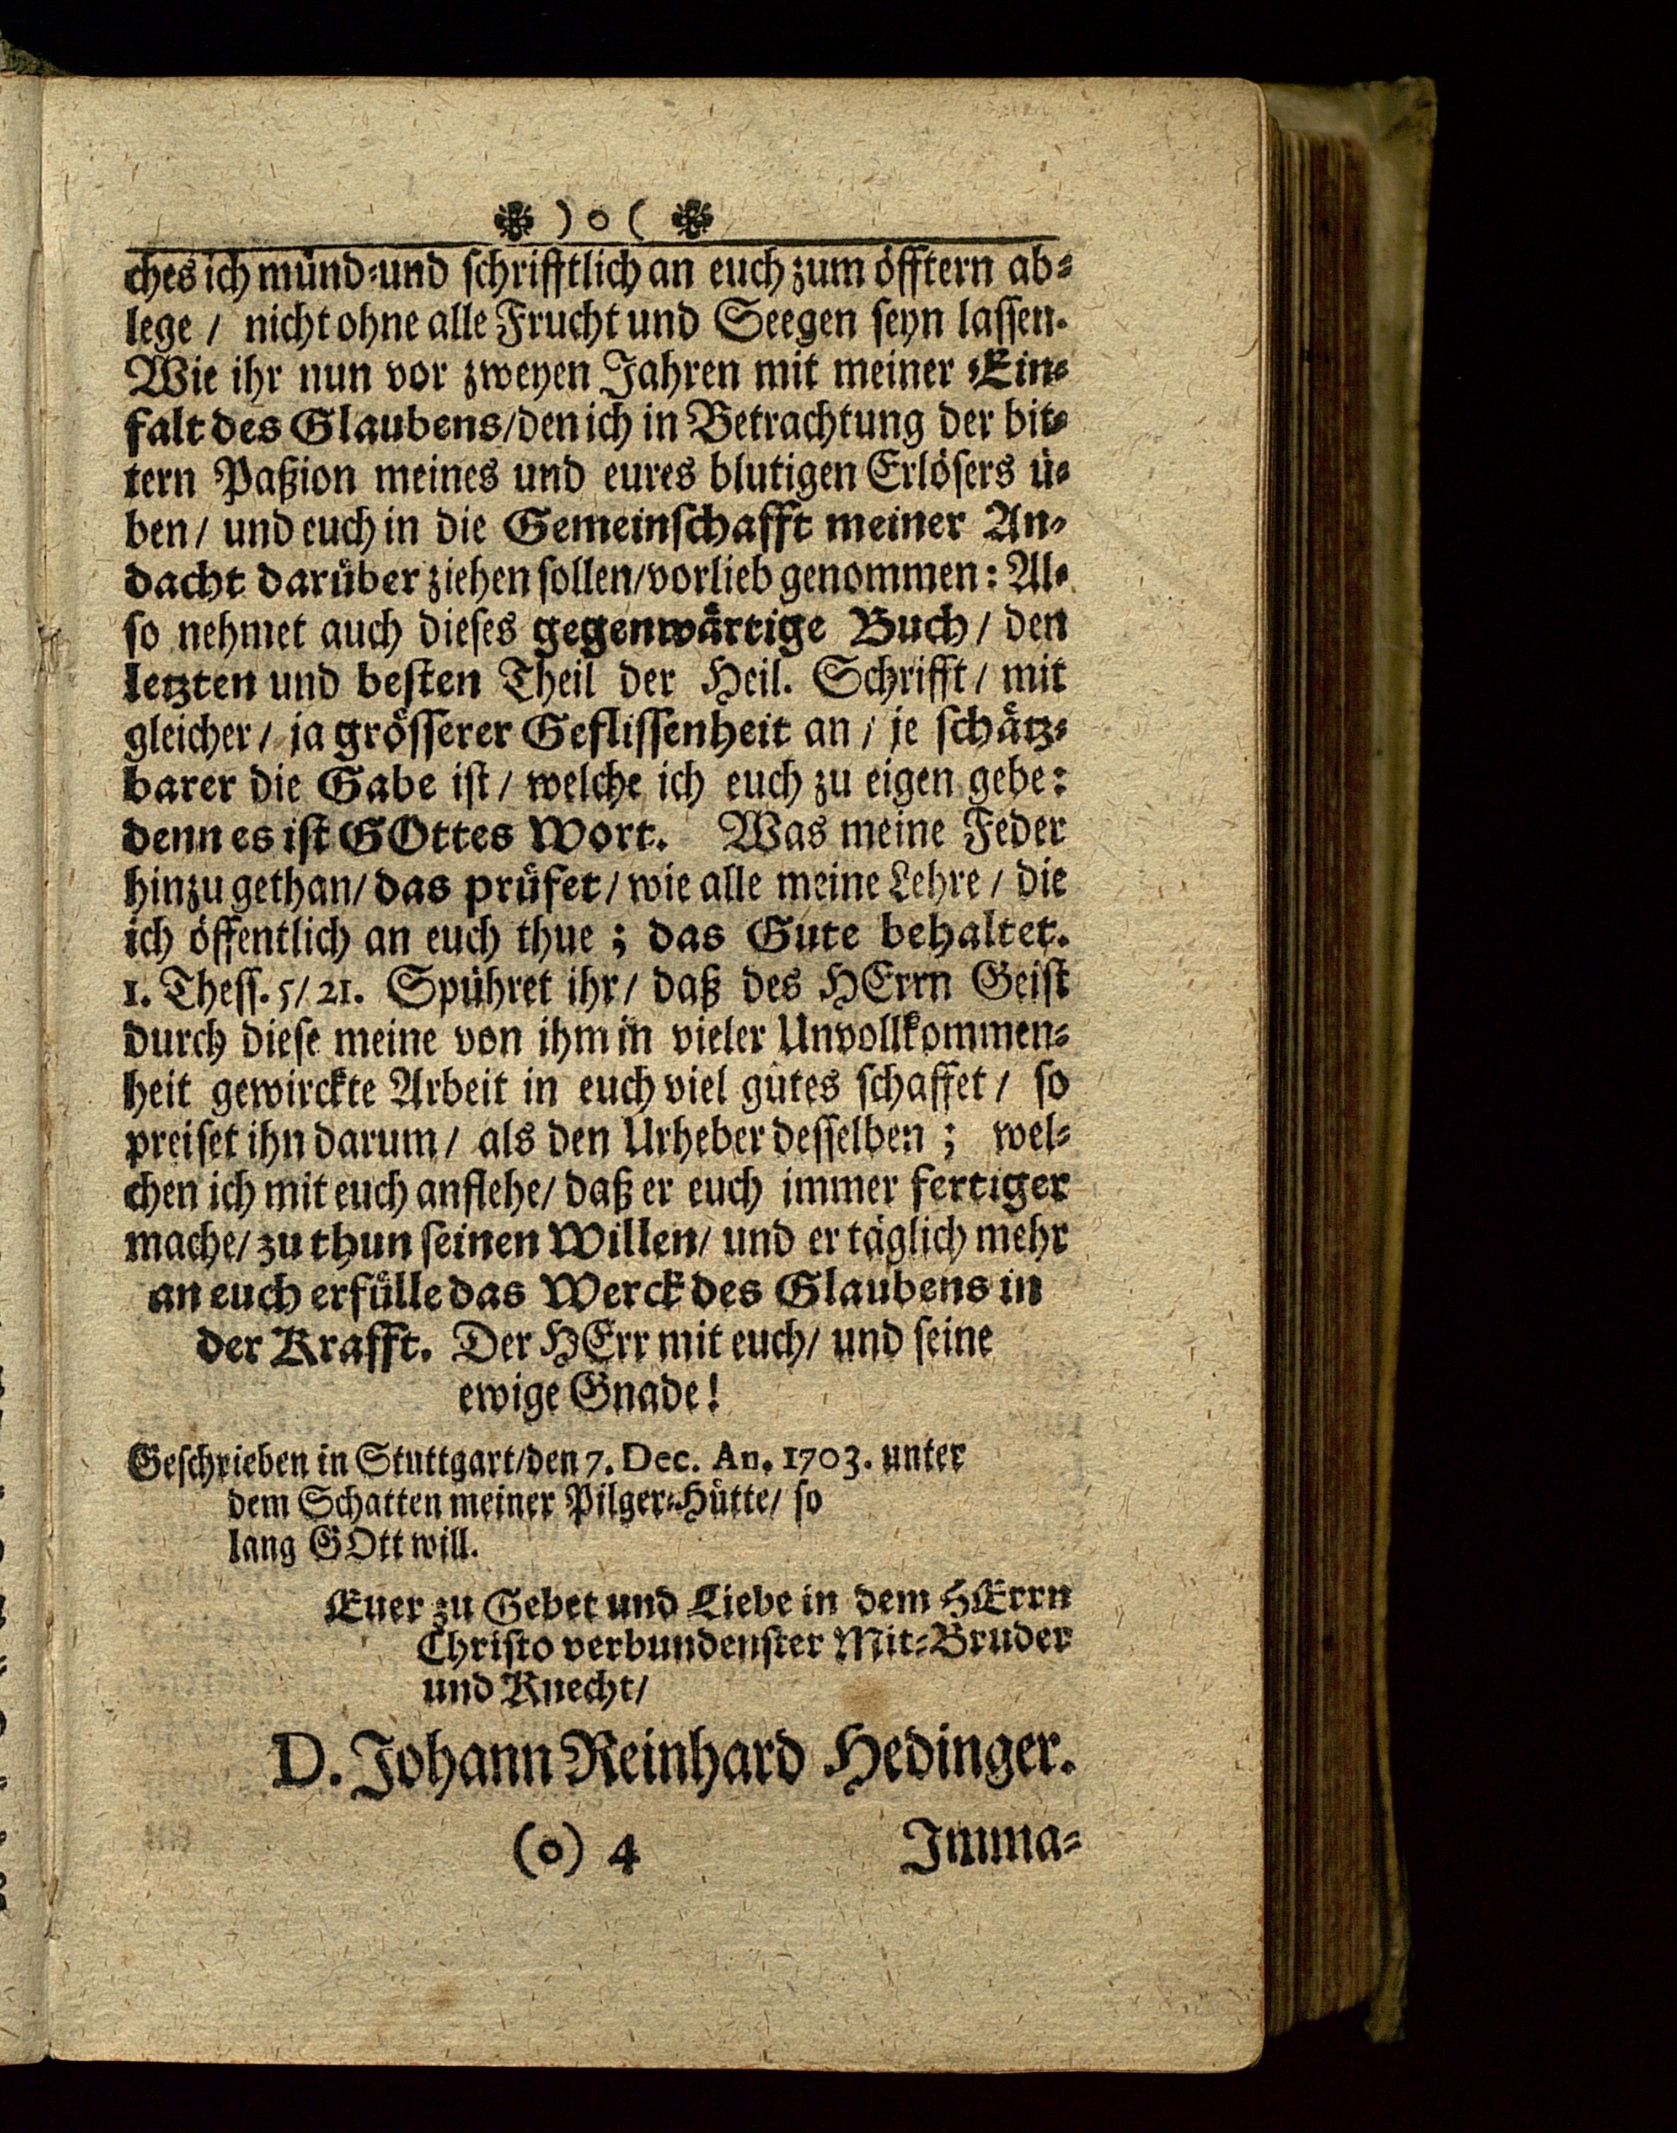 ) o (
ches ich münd-und schrifftlich an euch zum öfftern ab-
lege / nicht ohne alle Frucht und Seegen seyn lassen.
Wie ihr nun vor zweyen Jahren mit meiner Ein-
falt des Glaubens/den ich in Betrachtung der bit-
tern Paßion meines und eures blutigen Erlösers ü-
ben / und euch in die Gemeinschafft meiner An-
dacht darüber ziehen sollen/vorlieb genommen: Al-
so nehmet auch dieses gegenwärtige Buch / den
letzten und besten Theil der Heil. Schrifft / mit
gleicher / ja grösserer Geflissenheit an / je schätz-
barer die Gabe ist / welche ich euch zu eigen gebe:
denn es ist GOttes Wort. Was meine Feder
hinzu gethan/ das prüfet / wie alle meine Lehre / die
ich öffentlich an euch thue ; das Gute behaltet.
1. Thess. 5/ 21. Spühret ihr / daß des HErrn Geist
durch diese meine von ihm in vieler Unvollkommen-
heit gewirckte Arbeit in euch viel gutes schaffet / so
preiset ihn darum / als den Urheber desselben ; wel-
chen ich mit euch anflehe/ daß er euch immer fertiger
mache/ zu thun seinen Willen/ und er täglich mehr
an euch erfülle das Werck des Glaubens in
der Krafft. Der HErr mit euch/ und seine
ewige Gnade!
Geschrieben in Stuttgart/den 7. Dec. An. 1703. unter
dem Schatten meiner Pilger-Hütte/ so
lang GOtt will.
Euer zu Gebet und Liebe in dem HErrn
Christo verbundenster Mit-Bruder
und Knecht/
D. Johann Reinhard Hedinger.
(o) 4 Imma-